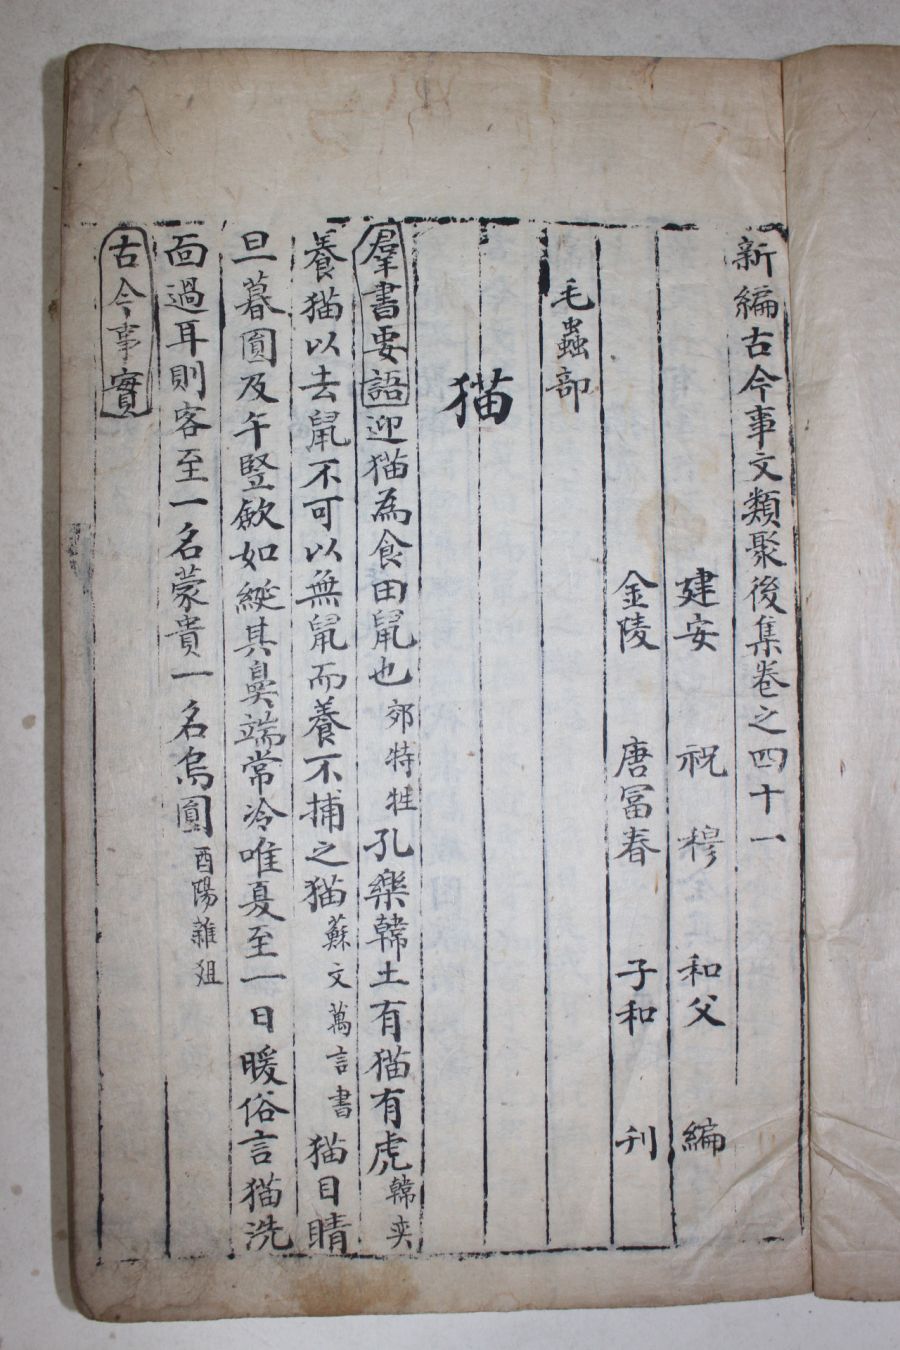 新編古今事文類聚後集卷之四十一
建安 祝 穆 和父 編
金陵 唐冨春 子和 刊
毛蟲部
猫
羣書要語迎猫為食田鼠也郊特牲孔樂韓土有猫有虎韓奕
養猫以去鼠不可以無鼠而養不捕之猫蘇文萬言書猫目睛
旦暮圎及午竪斂如綖其鼻端常冷唯夏至一日暖俗言猫洗
面過耳則客至一名蒙貴一名烏圓酉陽雜俎
古今事實